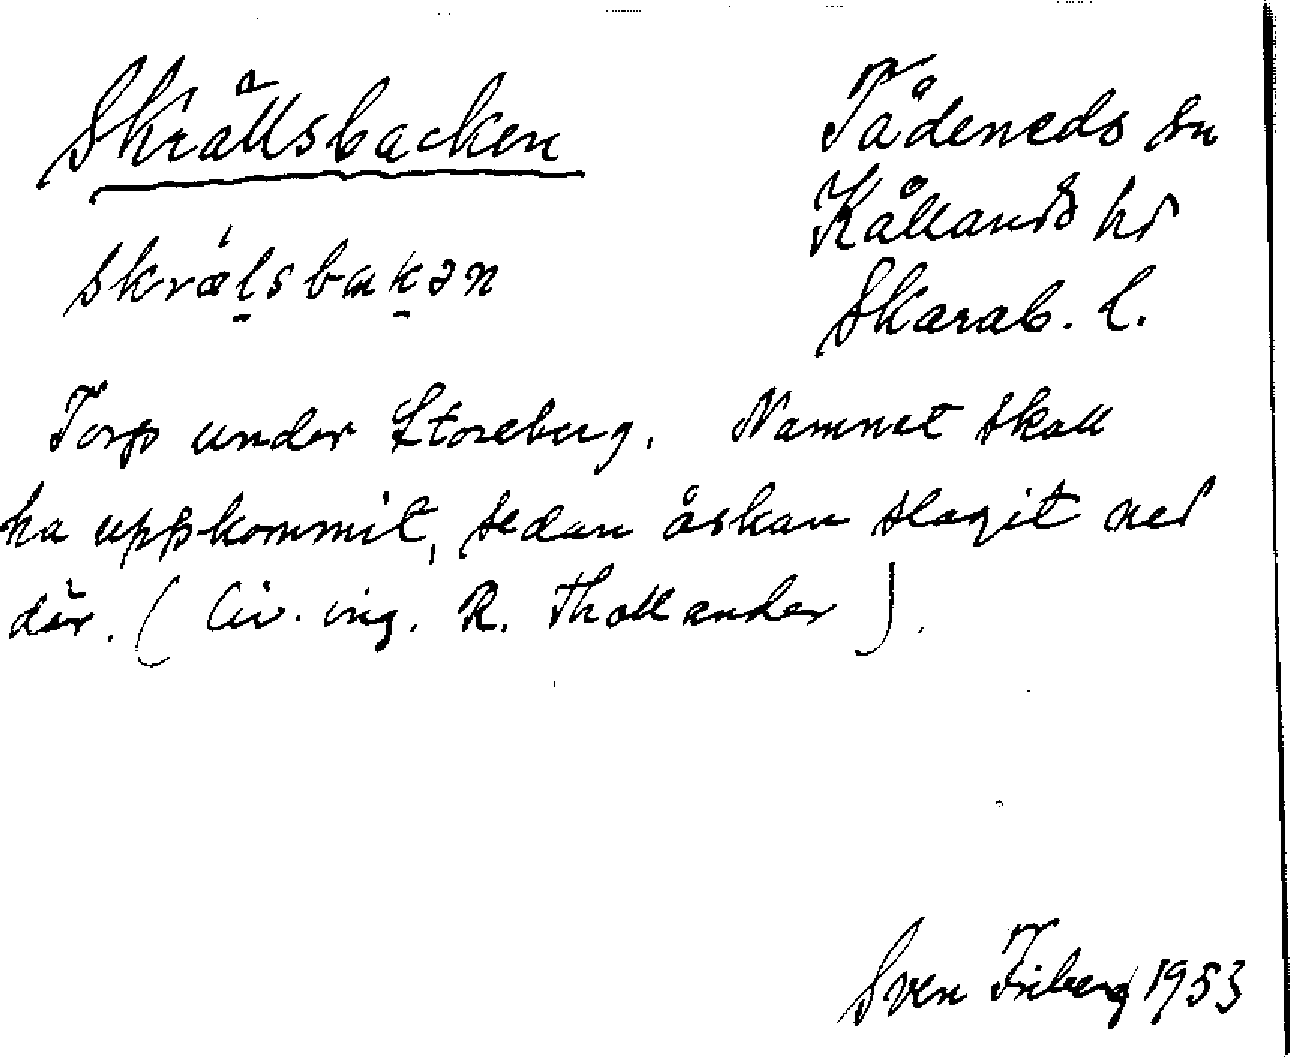 Skrällsbacken
Tådeneds sn
Kållands hd
Skarab. l.
skrälsbakən
Torp under Storeberg. Namnet skall
ha uppkommit, sedan åskan slagit ned
där. (Civ. ing. R. Thollander).
Sven Friberg 1953